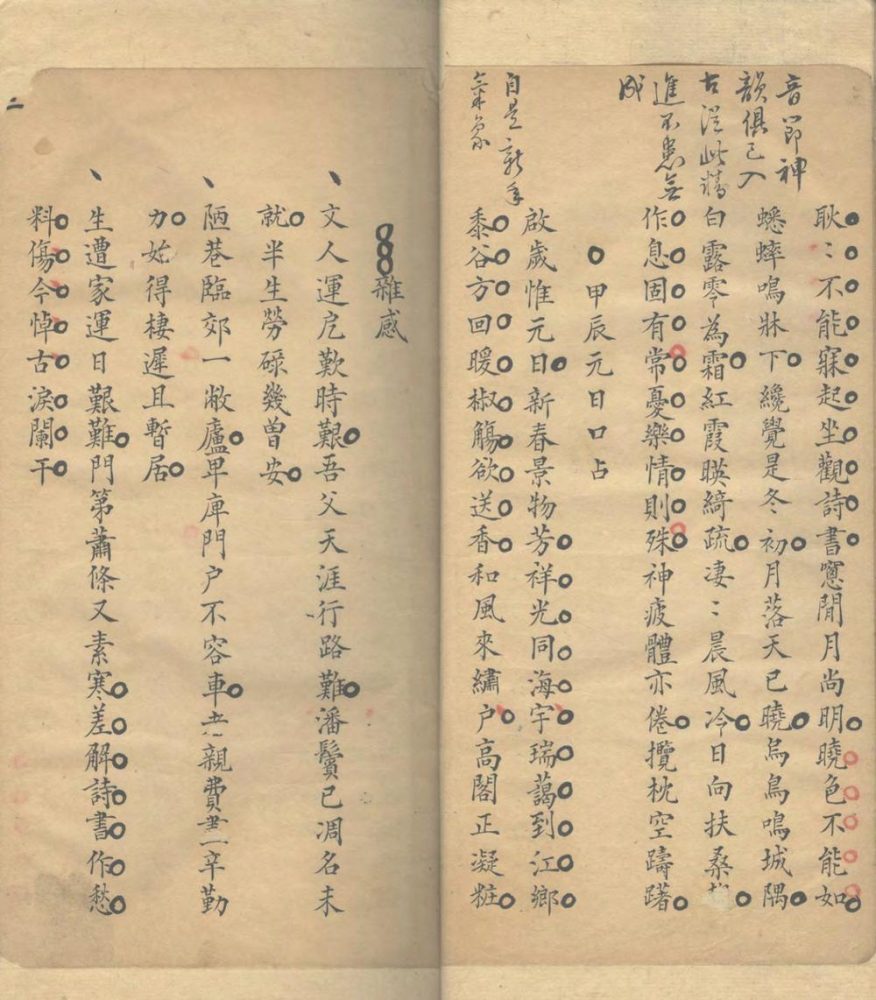 音節神
韻俱已入
古從此精
進不患無
成
耿〻不能寐起坐觀詩書窻閒月尚明曉色不能如
蟋蟀鳴牀下纔覺是冬初月落天已曉烏鳥鳴城隅
白露零為霜紅霞暎綺疏凄〻晨風冷日向扶桑
作息固有常憂樂情則殊神疲體亦倦攬枕空躊躇
自是新年
氣象
甲辰元日口占
啟歲惟元日新春景物芳祥光同海宇瑞藹到江鄉
黍谷方回暖椒觴欲送香和風來繡户高閣正凝粧
雜感
文人運戹歎時艱吾父天涯行路難潘鬢已凋名未
就半生勞碌幾曾安
陋巷臨郊一敝廬卑庳門户不容車親費辛勤
力始得棲遲且暫居
生遭家運日艱難門第蕭條又素寒差解詩書作愁
料傷今悼古淚闌干
二